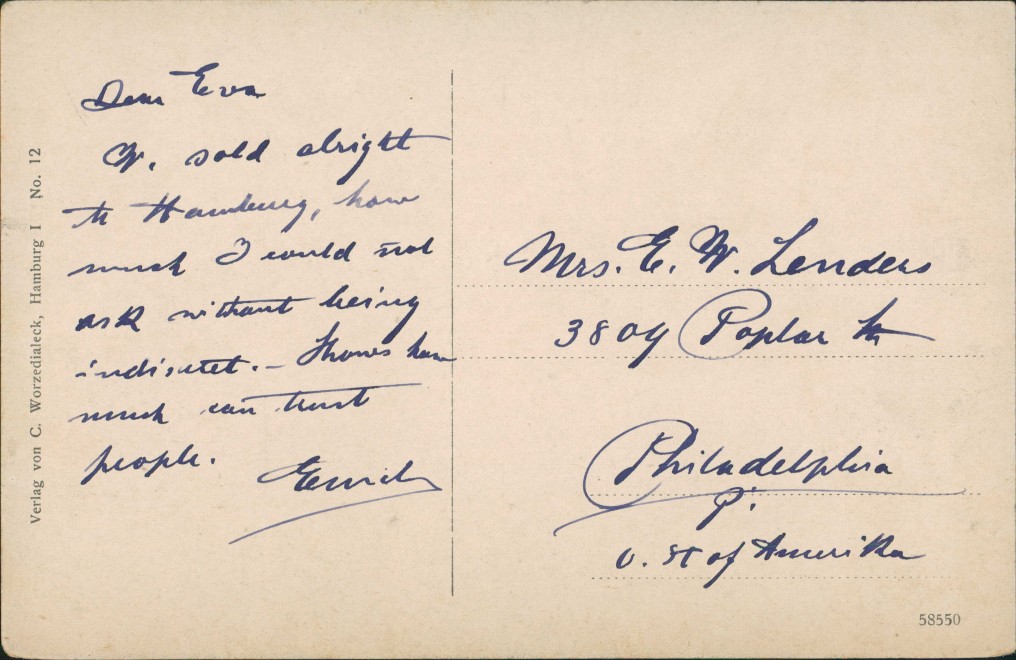 Verlag von C. Worzedialeck, Hamburg I No. 12
Dear Eva
W. sold alright
to Hamburg, how
much I could not
ask without being
indiscret. - Shows how
much can trust
people.
Mrs. E. W. Lenders
Poplar
Philadelphia
P.
U. St of Amerika
58550